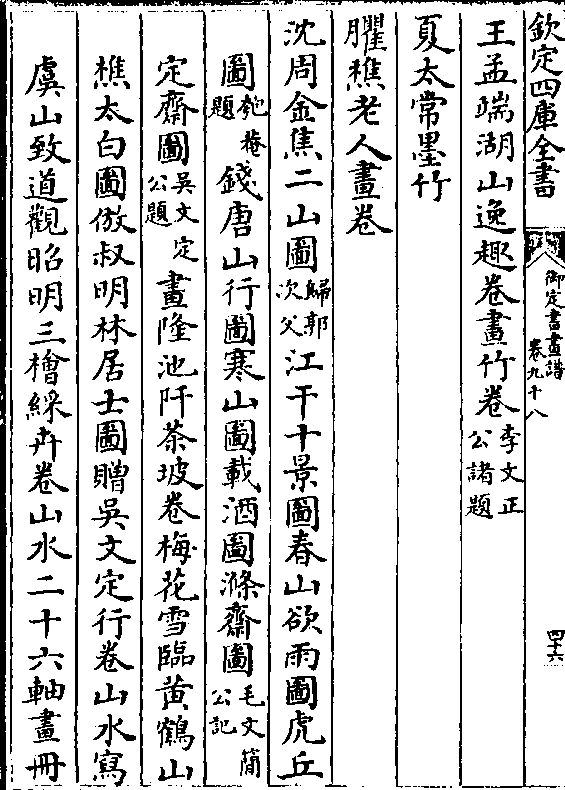 欽定四庫全書
御定書畫譜
卷九十八
四十六
王孟端湖山逸趣卷畫竹卷李文正公諸題
夏太常墨竹
臞樵老人畫卷
沈周金焦二山圖歸郭次父江干十景圖春山欲雨圖虎丘
圖匏菴題錢唐山行圖寒山圖載酒圖滌齋圖毛文簡公記
定齋圖吳文定公題畫隆池阡茶坡卷梅花雪臨黄鶴山
樵太白圖倣叔明林居士圖贈吳文定行卷山水寫
虞山致道觀昭明三檜綵卉卷山水二十六軸畫冊